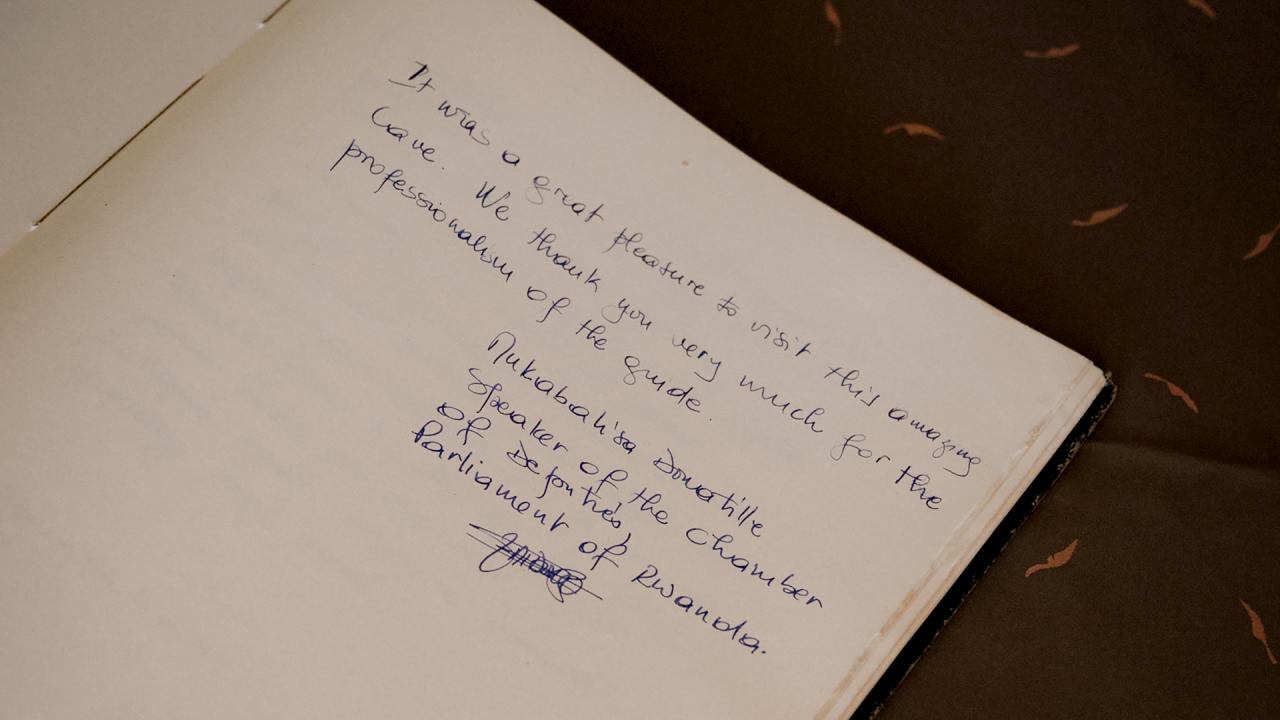 It was a great pleasure to visit this amazing
Cave. We thank you very much for the
professionalism of the guide.
Mukabalisa Donatille
Speaker of the Chamber
of Deputies,
Parliament of Rwanda.